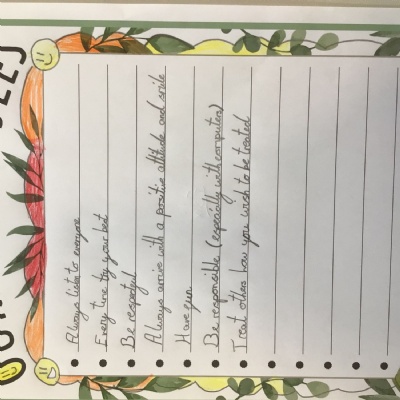 Always listen to everyone
Every time try your best
Be respectful
Always arrive with a positive attitude and smile
Have fun
Be responsible (especially with computers)
Treat others how you wish to be treated